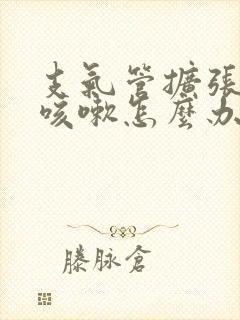 支氣管擴張
咳嗽怎麼办
滕脉倉